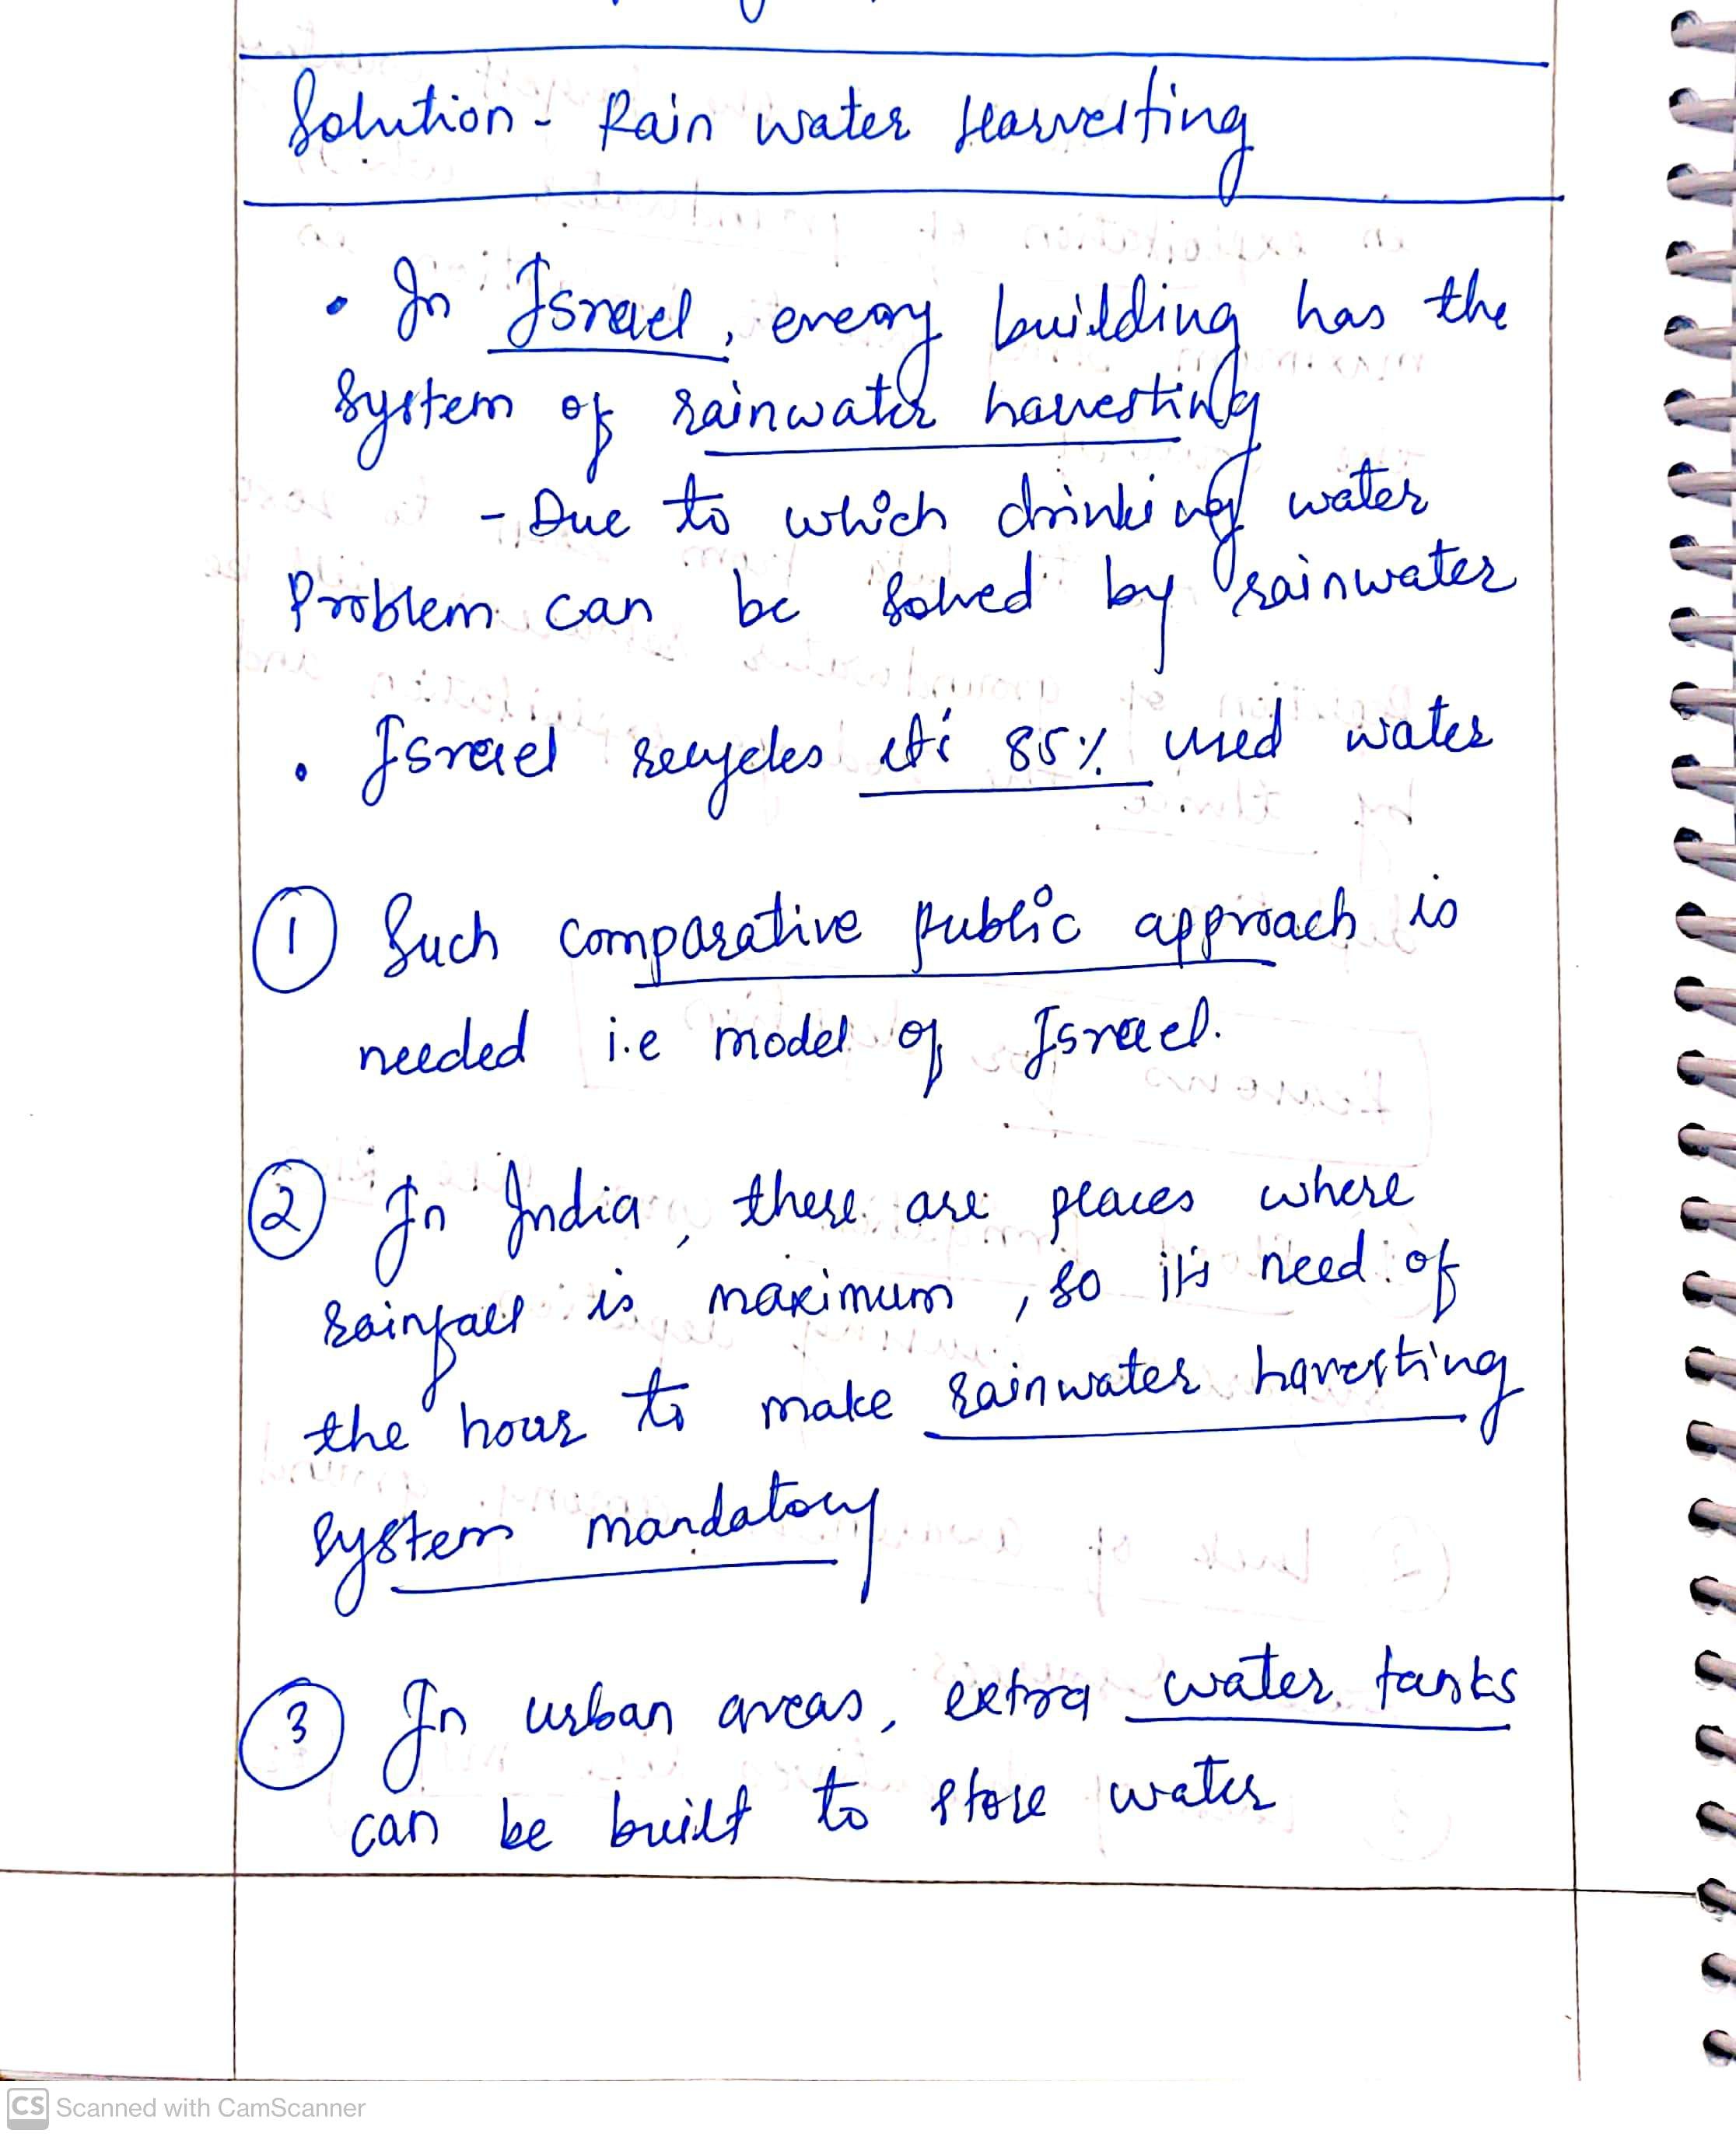 Solution - Rain water Harvesting
• In Israel, every building has the
System of rainwater harvesting
- Due to which drinking water
Problem can be solved by rainwater
• Israel recycles its 85% used water
① Such comparative public approach is
needed i.e model of Israel.
② In India, there are places where
rainfall is maximum, so it's need of
the hour to make rainwater harvesting
System mandatory
③ In urban areas, extra water tanks
can be built to store water
CS Scanned with CamScanner